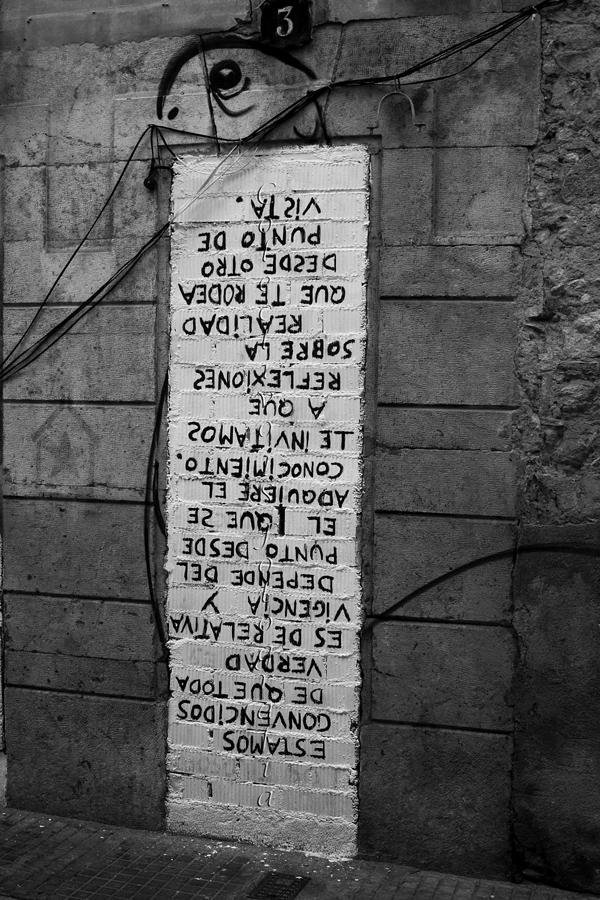 3
ESTAMOS.
CONVENCIDOS
DE QUE TODA
VERDAD
ES DE RELATIVA
VIGENCIA Y
DEPENDE DEL
PUNTO DESDE
EL QUE SE
ADQUIERE EL
CONOCIMIENTO.
LE INVITAMOS
A QUE
REFLEXIONES
SOBRE LA
REALIDAD
QUE TE RODEA
DESDE OTRO
PUNTO DE
VISTA.